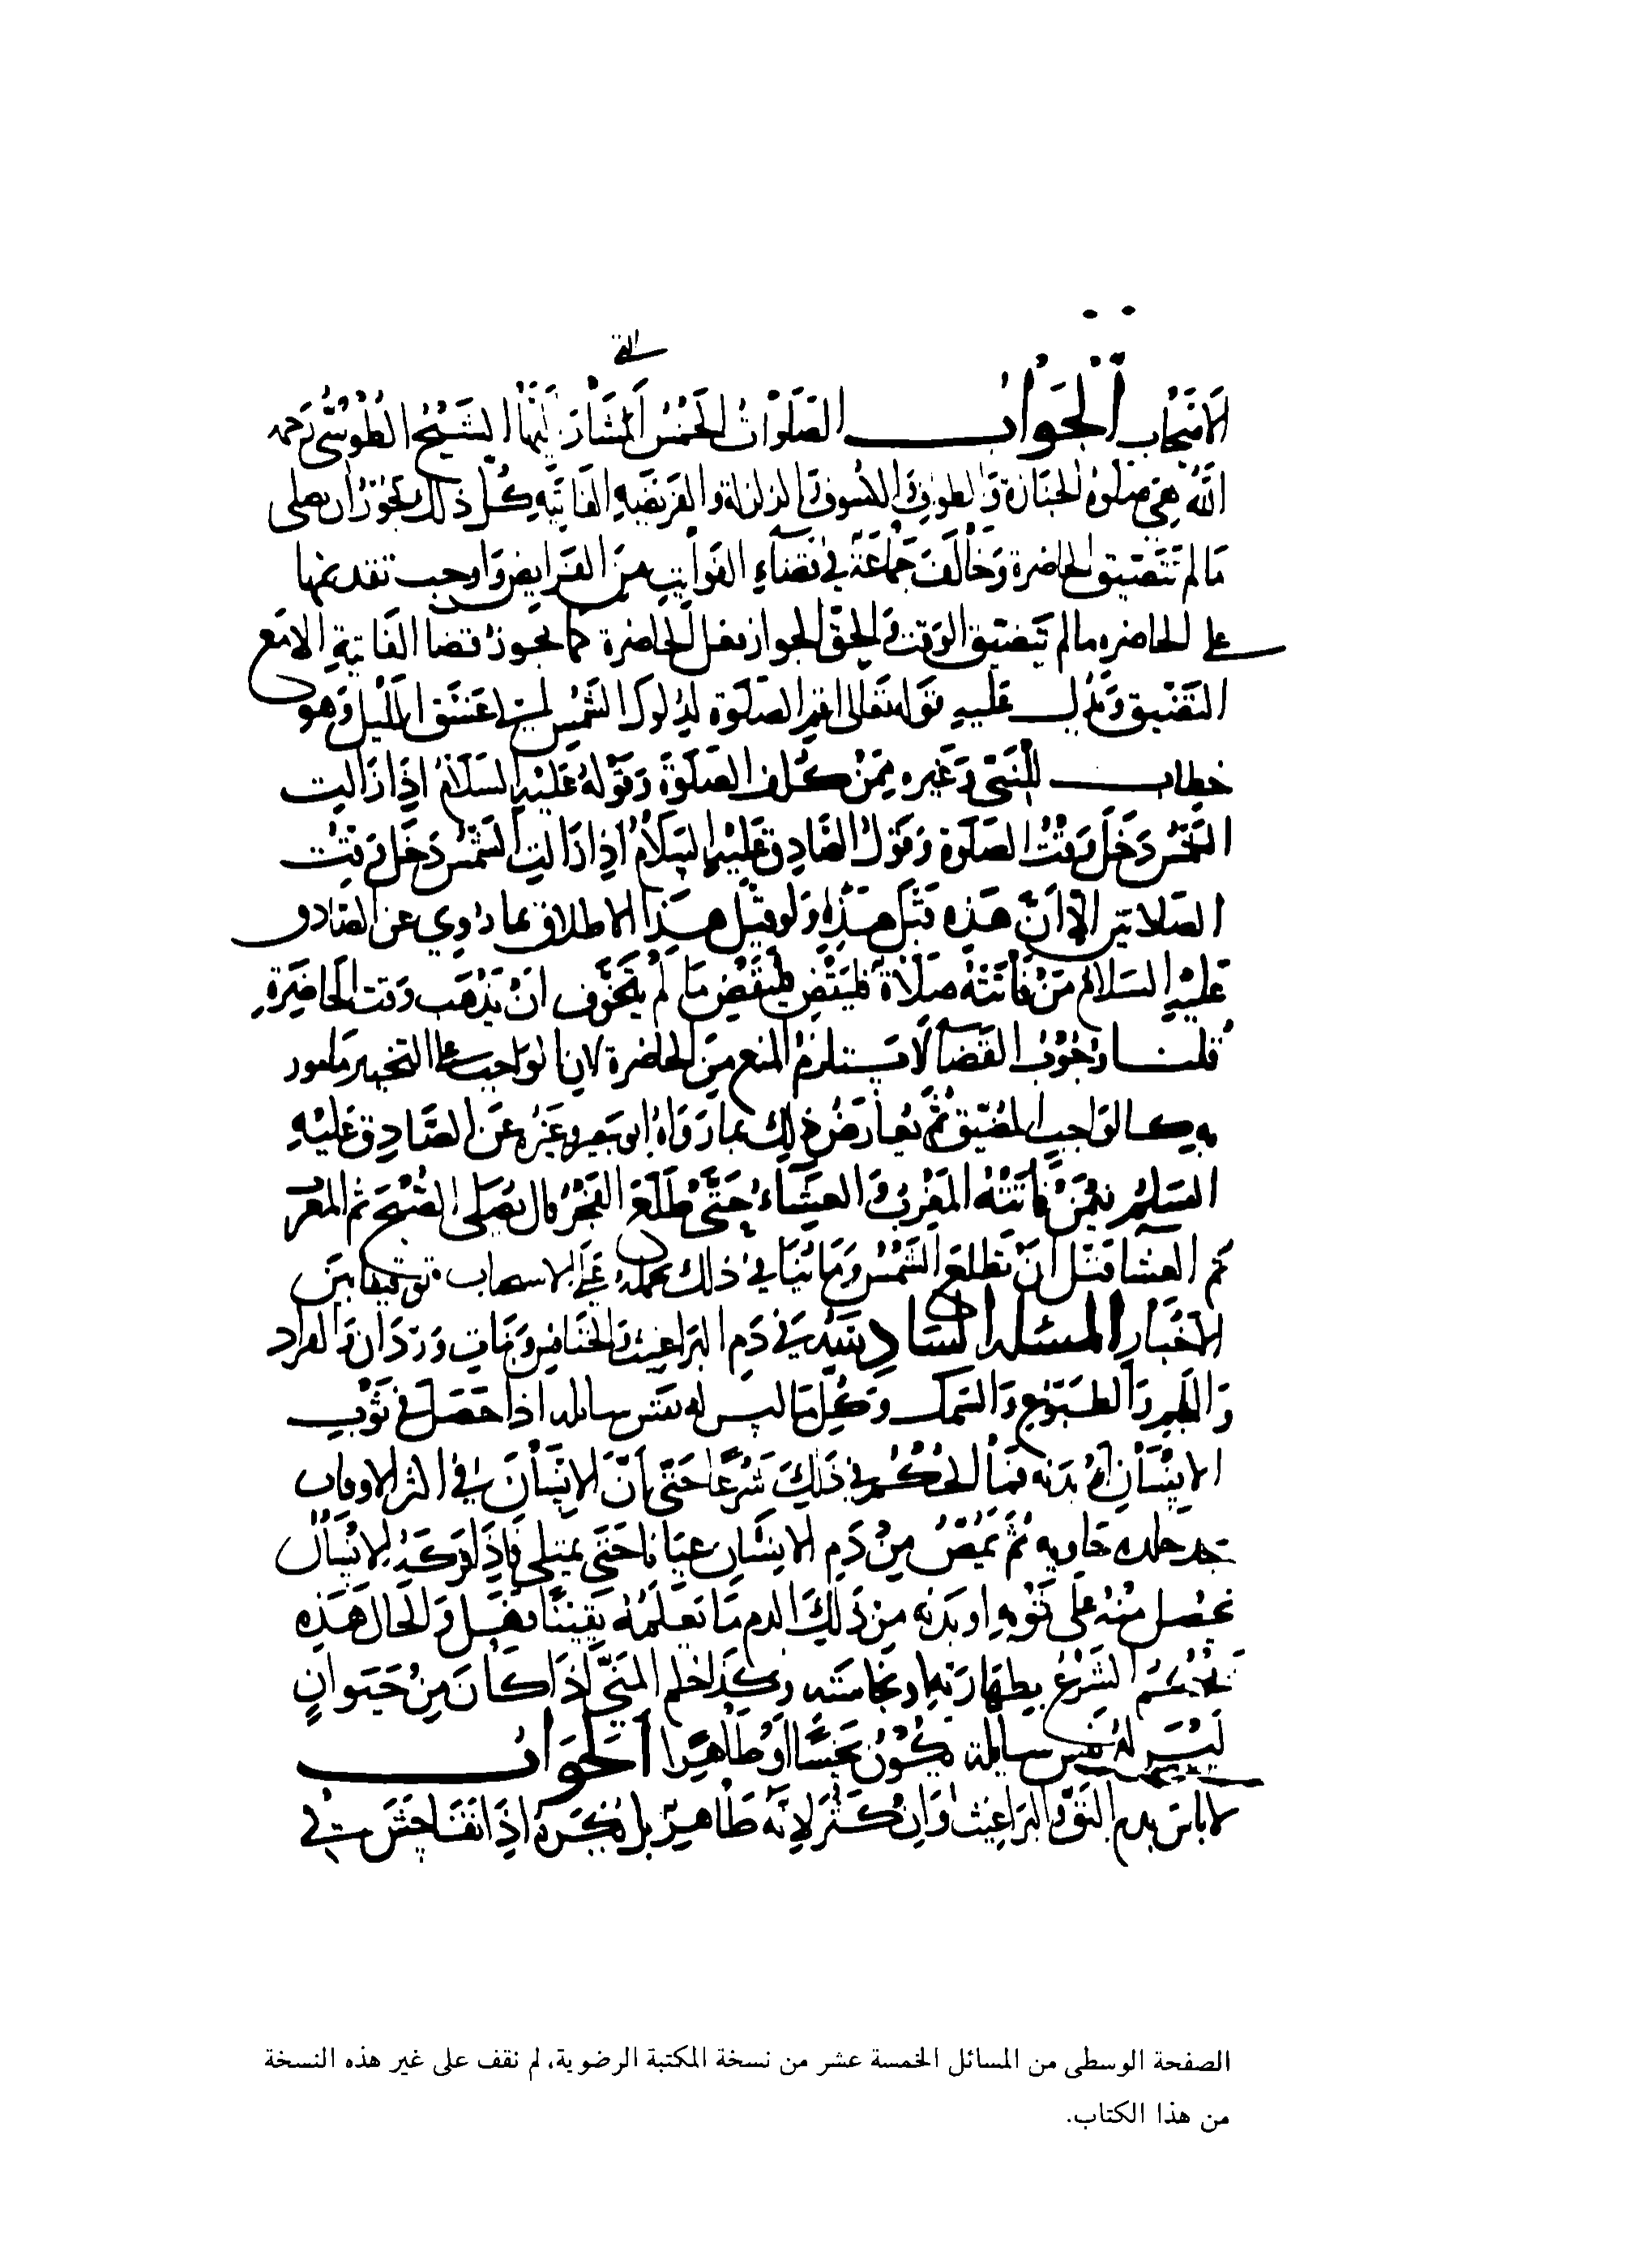 التي
الاصحاب الجواب الصلوات الخمس المشار اليها الشيخ الطوسي رحمه
الله هي صلوة الجنازة والطواف والكسوف والزلزلة والفريضه الفايته كل ذلك يجوز ان يصلى
ما لم تتضيق الحاضرة وخالف جماعة في قضاء الفوايت من الفرايض واوجب تقديمها
على الحاضره مالم يتضيق الوقت والحق الجواز فعل الحاضرة كما يجوز قضا الفايتة الا مع
التضيق ويدل عليه قوله تعالى اقم الصلوة لدلوك الشمس الى غسق الليل وهو
خطاب للنبي وغيره ممن كلف الصلوة وقوله عليه السلام اذا زالت
الشمس دخل وقت الصلوة وقول الصادق عليه السلام اذا زالت الشمس دخل وقت
الصلاتين الا ان هذه قبل هذه ولو قيل هذا الاطلاق بما روي عن الصادق
عليه السلام من فاتته صلاة فليقض ما لم يتخوف ان يذهب وقت الحاضرة
قلنا وجوب القضا لا يستلزم المنع من الحاضرة لان الواجب على التخيير مامور
به كالواجب المضيق ثم يعارض ذلك بما رواه ابو بصير وغيره عن الصادق عليه
السلم فيمن فاتته المغرب والعشاء حتى طلع الفجر قال يصلى الصبح ثم المغرب
ثم العشا قبل ان تطلع الشمس وما في ذلك يحمله على الاستحباب توفيقا بين
الاخبار المسئلة السادسة في دم البراغيث والخنافس وبنات وردان والقراد
والطبوع والسمك وكل ما ليس له نفس سائله اذا حصل في ثوب
الانسان او بدنه فما الحكم في ذلك شرعا حتى ان الانسان في اكثر الاوقات
يجد جلده خاويه ثم يمص من دم الانسان عيانا حتى يمتلي فاذا فركه الانسان
يحصل منه على ثوبه او بدنه من ذلك الدم ما نعلمه يقينا فهل والحال هذه
يحكم الشرع بطهارته او نجاسته وكذا حكم المني اذا كان من حيوان
ليس له نفس سايلة يكون نجسا او طاهرا الجواب
لا باس بدم البق والبراغيث وان كثر لانه طاهر بل يكره اذا تفاحش في
الصفحة الوسطى من المسائل الخمسة عشر من نسخة المكتبة الرضوية، لم نقف على غير هذه النسخة
من هذا الكتاب.